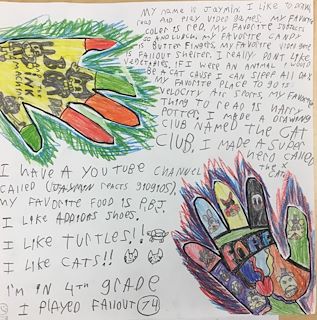 MY NAME IS JAYMIN. I LIKE TO DRAW,
READ AND PLAY VIDEO GAMES. MY FAVORITE
COLOR IS RED. MY FAVORITE SUBJECTS
IS AND LUNCH. MY FAVORITE CANDY
IS BUTTER FINGERS. MY FAVORITE VIDEO GAME
IS FALLOUT SHELTER. I REALLY DON'T LIKE
VEGETABLES. IF I WERE AN ANIMAL I WOULD
BE A CAT CAUSE I CAN SLEEP ALL DAY.
MY FAVORITE PLACE TO GO IS
VELOCITY AIR SPORTS. MY FAVORITE
THING TO READ IS HARRY
POTTER. I MADE A DRAWING
CLUB NAMED THE CAT
CLUB. I MADE A SUPER
HERO CALLED
THE
CAT
I HAVE A YOUTUBE CHANNEL
CALLED (JAYMIN REACTS
MY FAVORITE FOOD IS P.B.J.
I LIKE ADDIDAS SHOES.
I LIKE TURTLES!!
I LIKE CATS!!
I'M IN 4TH GRADE
I PLAYED FALLOUT 74